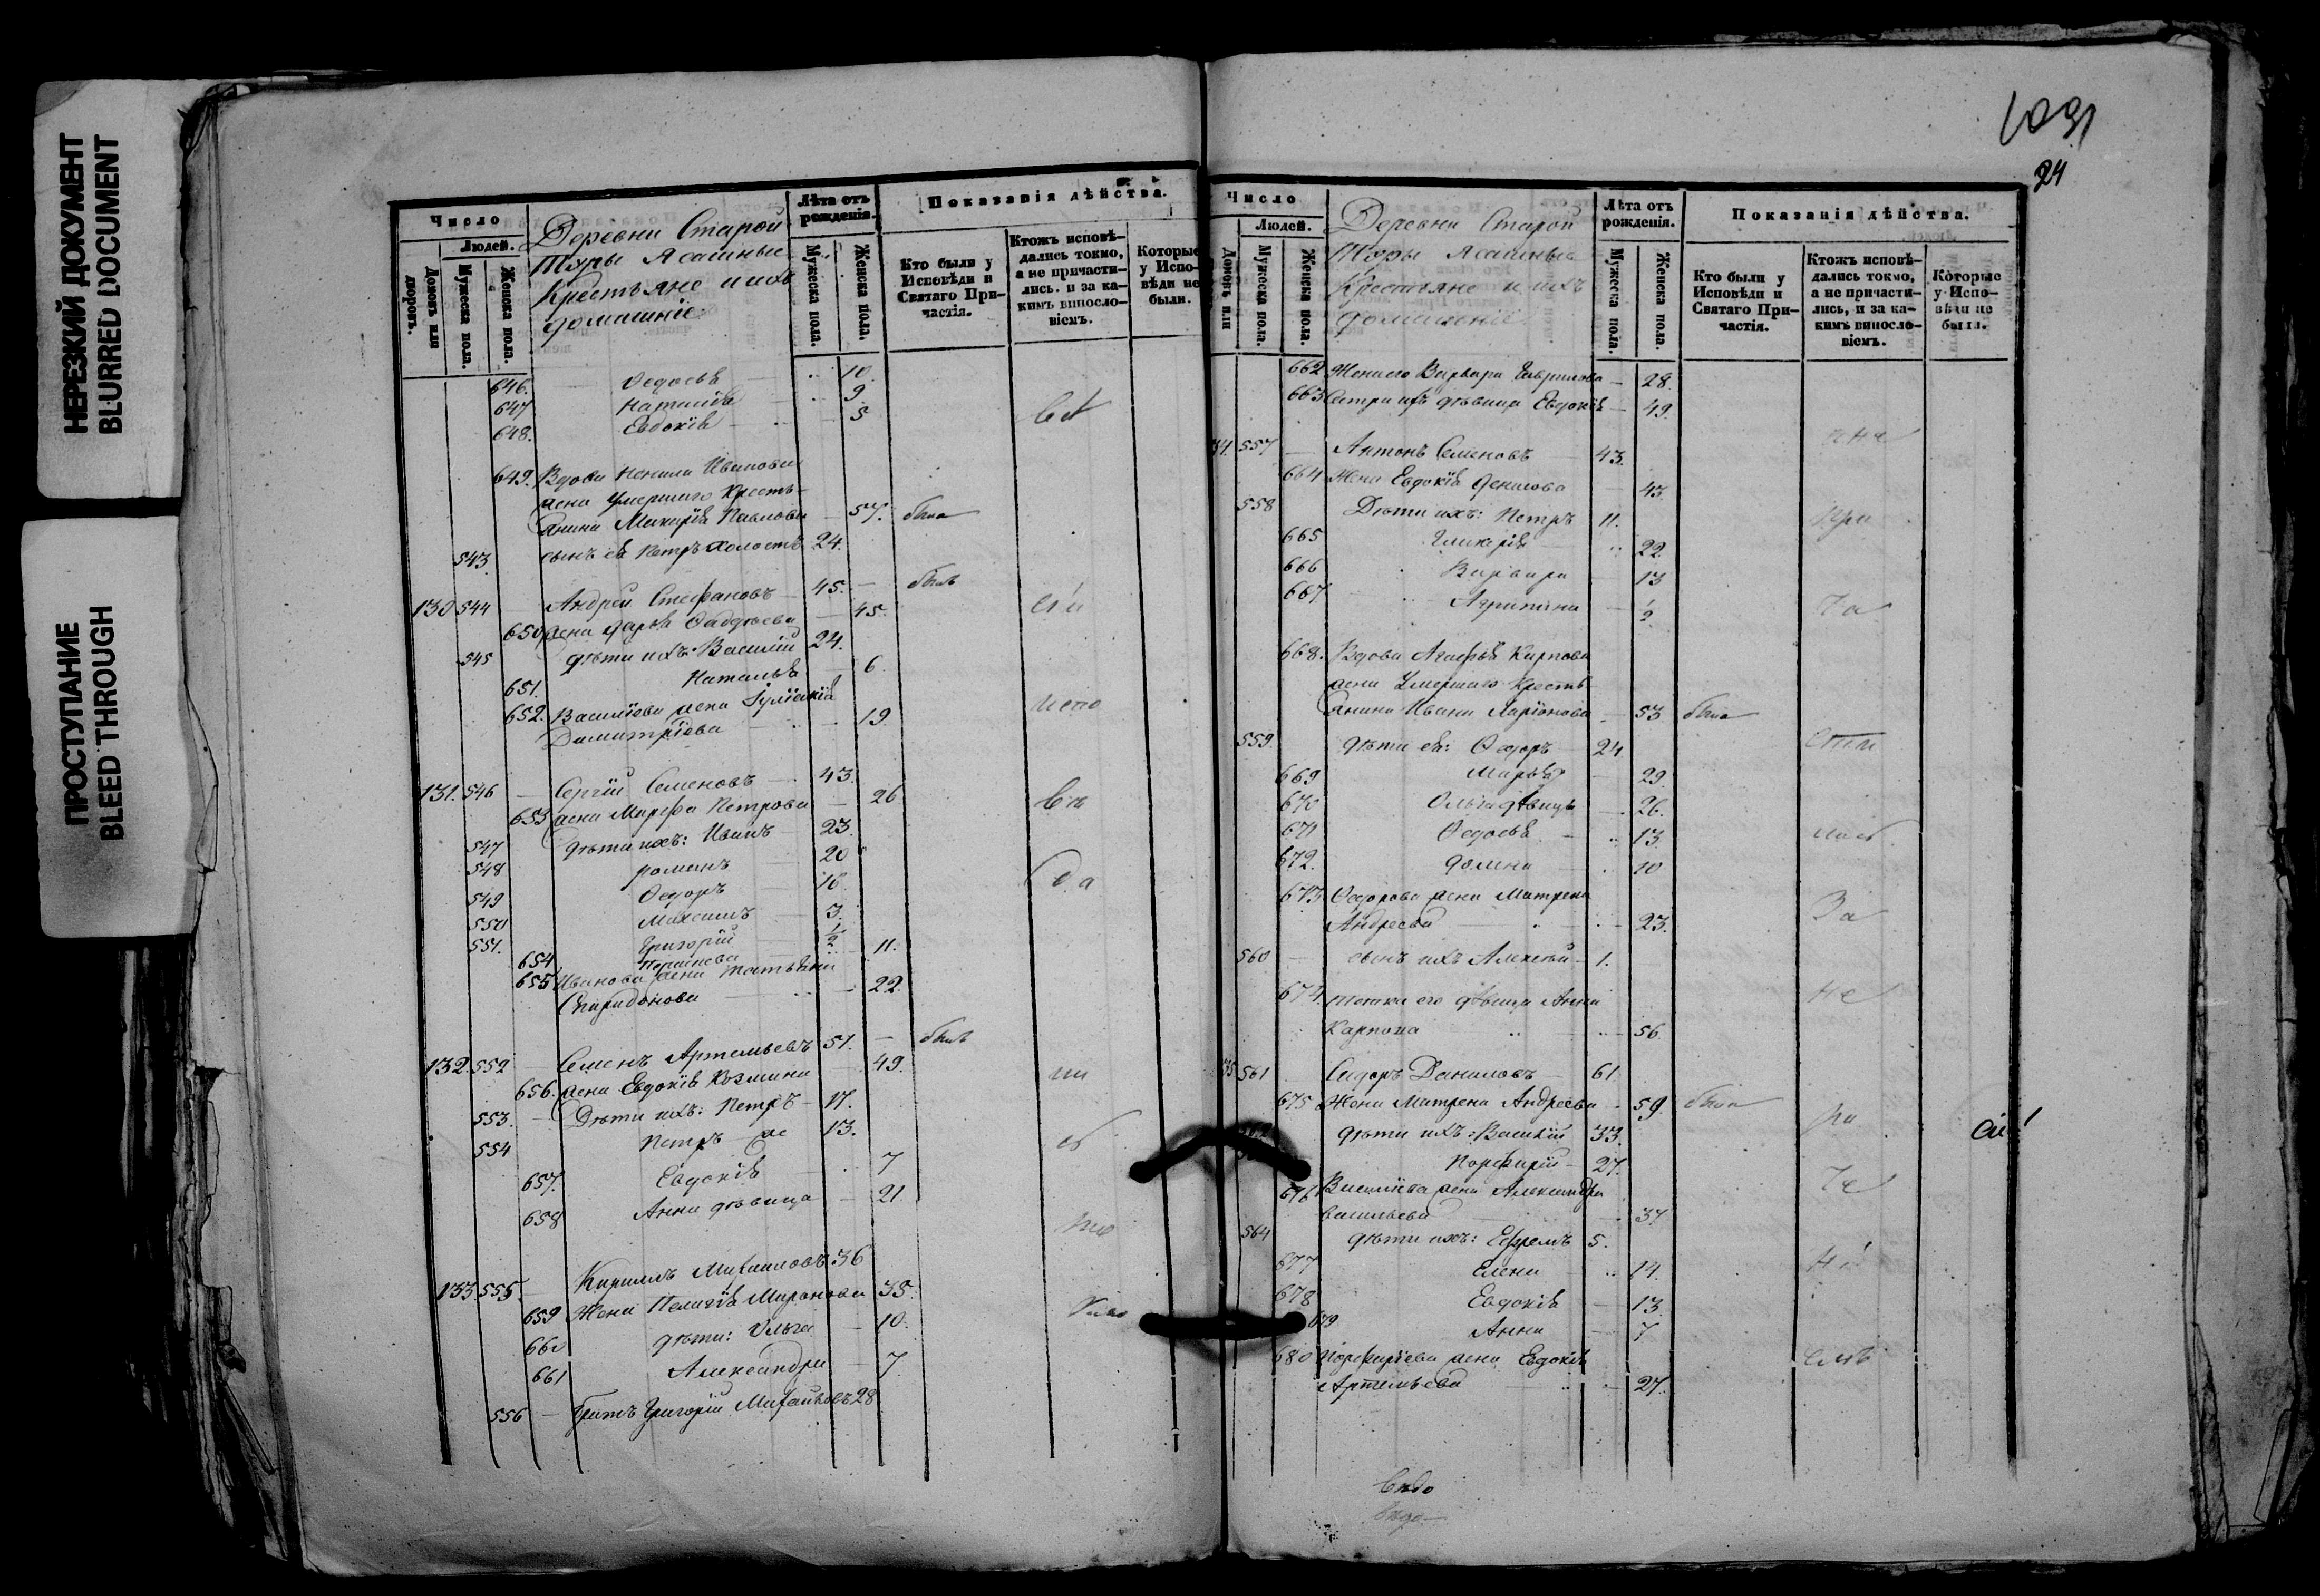 НЕРЕЗКИЙ ДОКУМЕНТ
BLURRED DOCUMENT
ПРОСТУПАНИЕ
BLEED THROUGH
Число
Людей.
Домовъ или дворовъ.
Мужеска пола.
Женска пола.
Деревни Старой
Туры Ясашные
Крестьяне и ихъ
домашніе:
Лѣта отъ рожденія.
Мужеска пола.
Женска пола.
Показанія дѣйства.
Кто были у Исповѣди и Святаго Причастія.
Ктожъ исповѣдались токмо, а не причастились. и за какимъ винословіемъ.
Которые у Исповѣди не были.
646. Ѳедосья 10.
647 Наталія 9
648. Евдокія 5
649. Вдова Ненила Иванова
жена умершаго кресть-
янина Макарія Павлова 57. была
543. сынъ ея Петръ холостъ 24.
130 544 Андрей Стефановъ 45. былъ
650 жена Дарья Фаддѣева 45.
545 дѣти ихъ: Василій 24.
651. Наталья 6.
652. Василіева жена Іуліанія
Димитріева 19
131. 546 Сергій Семеновъ 43.
653 жена Марфа Петрова 26
547 дѣти ихъ: Иванъ 23.
548 Романъ 20
549 Ѳедоръ 16.
550 Максимъ 3.
551. Григорій 1/2
654 11.
655 Иванова жена Татьяна
Спиридонова 22.
132. 552 Семенъ Артемьевъ 51. былъ
656. жена Евдокія Козмина 49.
553. Дѣти ихъ: Петръ 17.
554 Петръ же 13.
657. Евдокія 7
658 Анна дѣвица 21
133. 555. Кириллъ Михаиловъ 36
659 Жена Пелагія Миронова 35.
660 дѣти: Ольга 10.
661 Александра 7.
556 Братъ Григорій Михаиловъ 28
24
Число
Людей.
Домовъ или
Мужеска пола.
Женска пола.
Деревни Старой
Туры Ясашные
Крестьяне и ихъ
домашніе
Лѣта отъ рожденія.
Мужеска пола.
Женска пола.
Показанія дѣйства.
Кто были у Исповѣди и Святаго Причастія.
Ктожъ исповѣдались токмо, а не причастились, и за какимъ винословіемъ.
Которые у Исповѣди не были.
662 Жена его Варвара Гаврилова 28.
663 Сестра ихъ дѣвица Евдокія 49.
557 Антонъ Семеновъ 43.
664 Жена Евдокія Данилова 43.
558 Дѣти ихъ: Петръ 11.
665 Гликерія 22.
666 Варвара 13
667 Агрипина 1/2
668. Вдова Агафья Карпова
жена Умершаго Кресть-
янина Ивана Ларіонова 53 была
559. дѣти ея: Ѳедоръ 24
669 Марья 29.
670 Ольга дѣвица 26.
671 Ѳедосья 13.
672. Домна 10
673 Ѳедорова жена Матрена
Андреева 23.
560 сынъ ихъ Алексѣй 1.
674. тетка его дѣвица Анна
Карпова 56.
561 Сидоръ Даниловъ 61
675 Жена Матрена Андреева 59 была
дѣти ихъ: Василій 33.
Порфирій 27.
676 Василіева жена Александра
Васильева 37
564 дѣти ихъ: Ефремъ 5.
677 Елена 14.
678 Евдокія 13.
679 Анна 7
680 Порфиріева жена Евдокія
Артемьева 27.